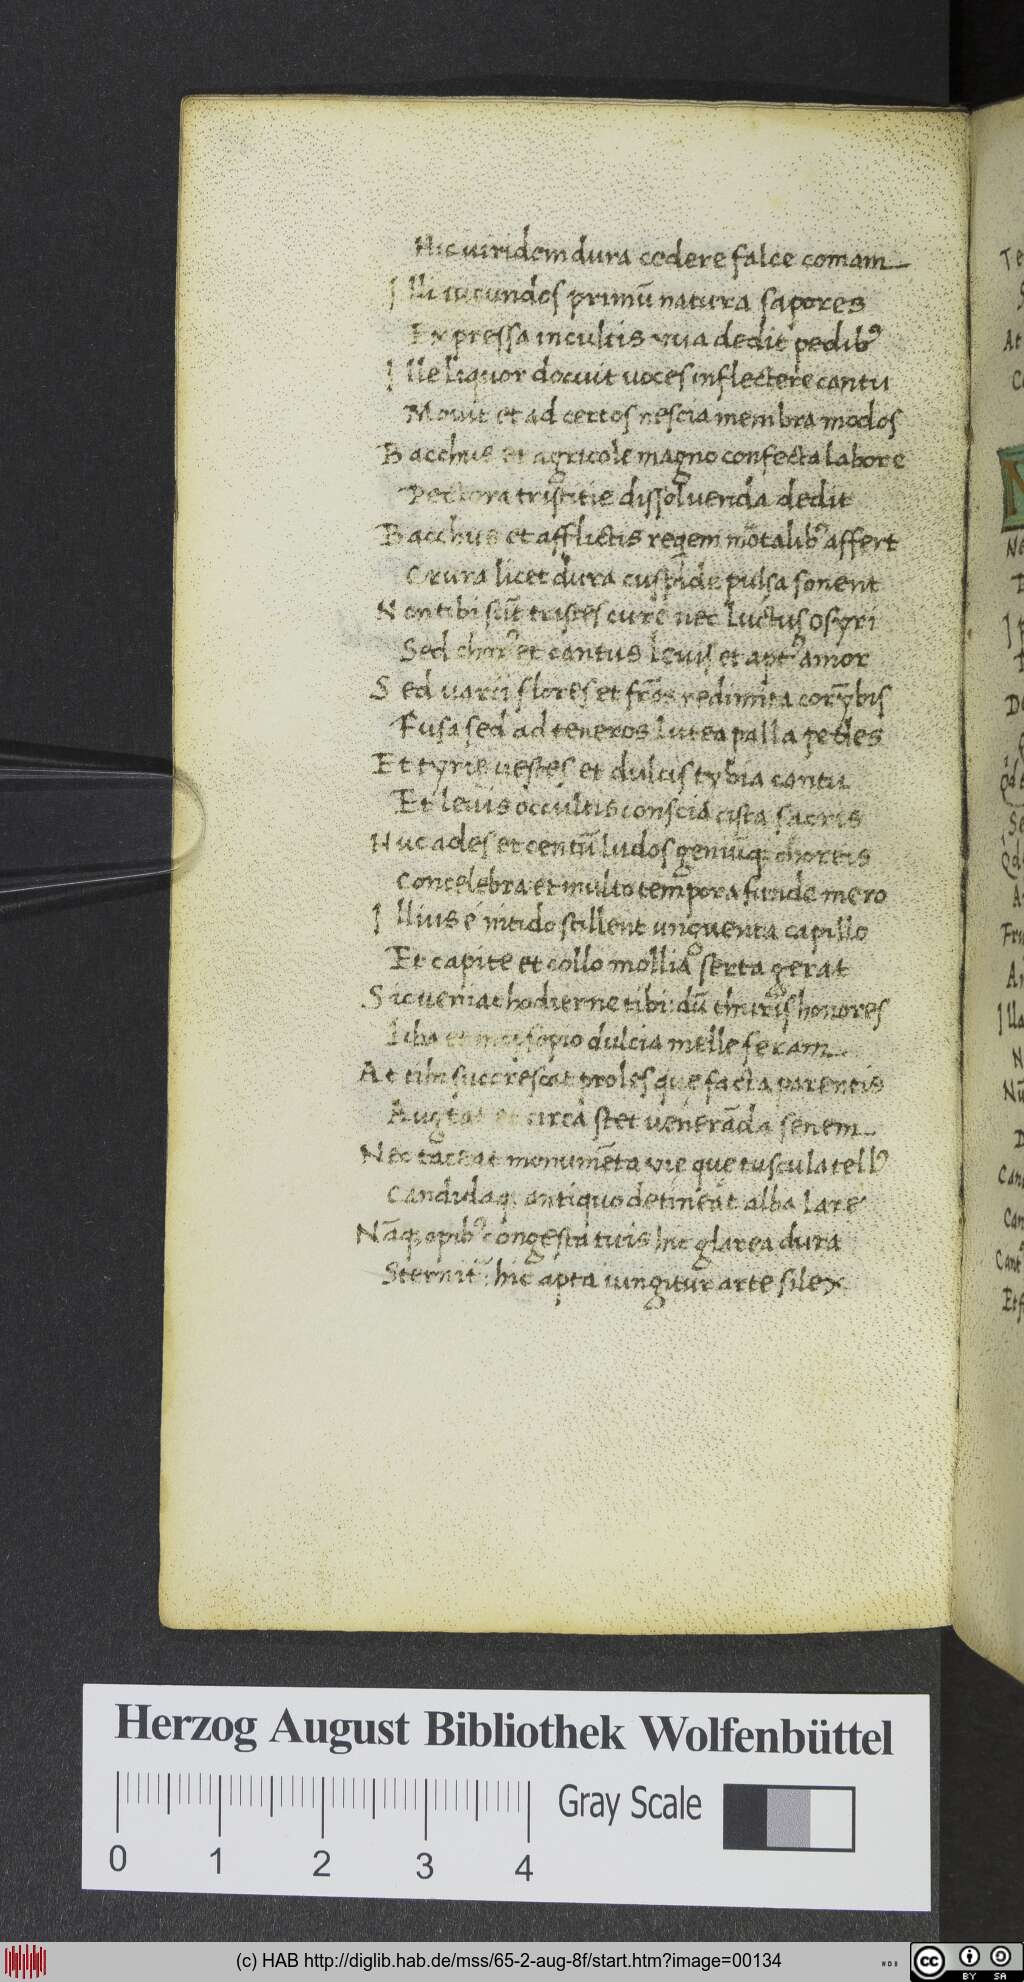 Hic uiridem dura cedere falce comam
Illi iucundos primū natura sapores
Expressa incultis vua dedit pedibꝰ
Ille liquor docuit uoces inflectere cantu
Mouit et ad certos nescia membra modos
Bacchus et agricole magno confecta labore
Pectora tristitie dissoluenda dedit
Bacchus et afflictis reqem mōtalibꝰ affert
Crura licet dura cuspide pulsa sonent
Non tibi sūt tristes cure nec luctus osyri
Sed chorꝰ et cantus leuis et aptꝰ amor
Sed varii flores et frōs redimita corȳbis
Fusa sed ad teneros lutea palla pedes
Et tyrie uestes et dulcis tybia cantu
Et leuis occultis conscia cista sacris
Huc ades et centū ludos geniūq; choreis
Concelebra: et multo tempora funde mero
Illius é nitido stillent unguenta capillo
Et capite et collo mollia serta gerat
Sic uenias hodierne tibi: dū thuris honores
Liba et mopsopio dulcia melle feram
At tibi succrescat proles que facta parentis
Augeat et circa stet venerāda senem
Nec taceat monumēta vie que tuscula tellꝰ
Candidaq; antiquo detineat alba lare
Nāq; opibꝰ congesta tuis hic glarea dura
Sternit᷑: hic apta iungitur arte silex
Herzog August Bibliothek Wolfenbüttel
Gray Scale
0 1 2 3 4
(c) HAB http://diglib.hab.de/mss/65-2-aug-8f/start.htm?image=00134
cc BY SA